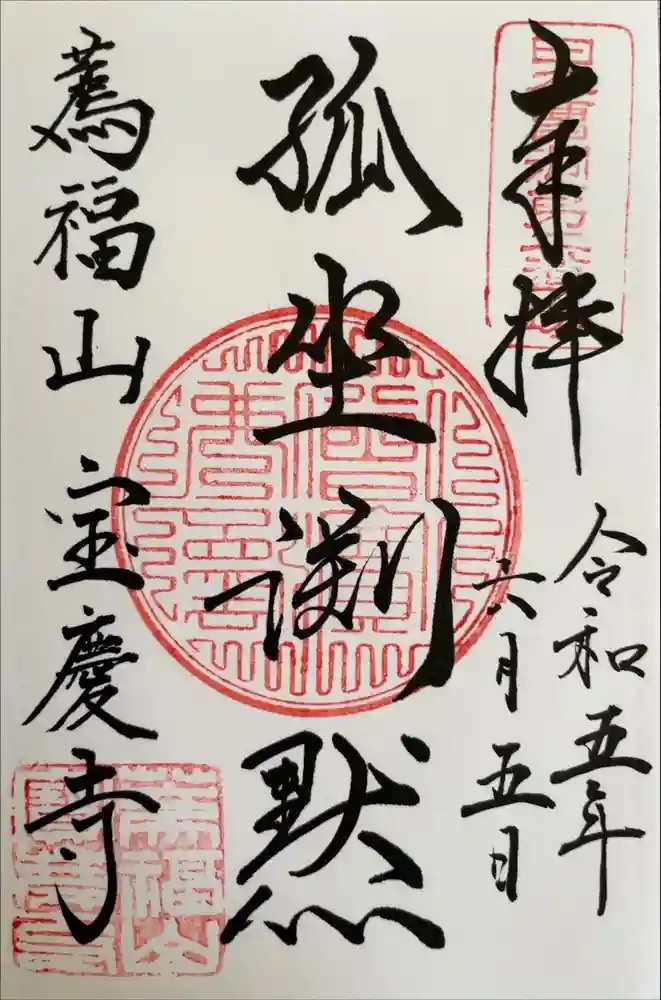 奉拝
令和五年
六月五日
孤坐渕黙
薦福山宝慶寺